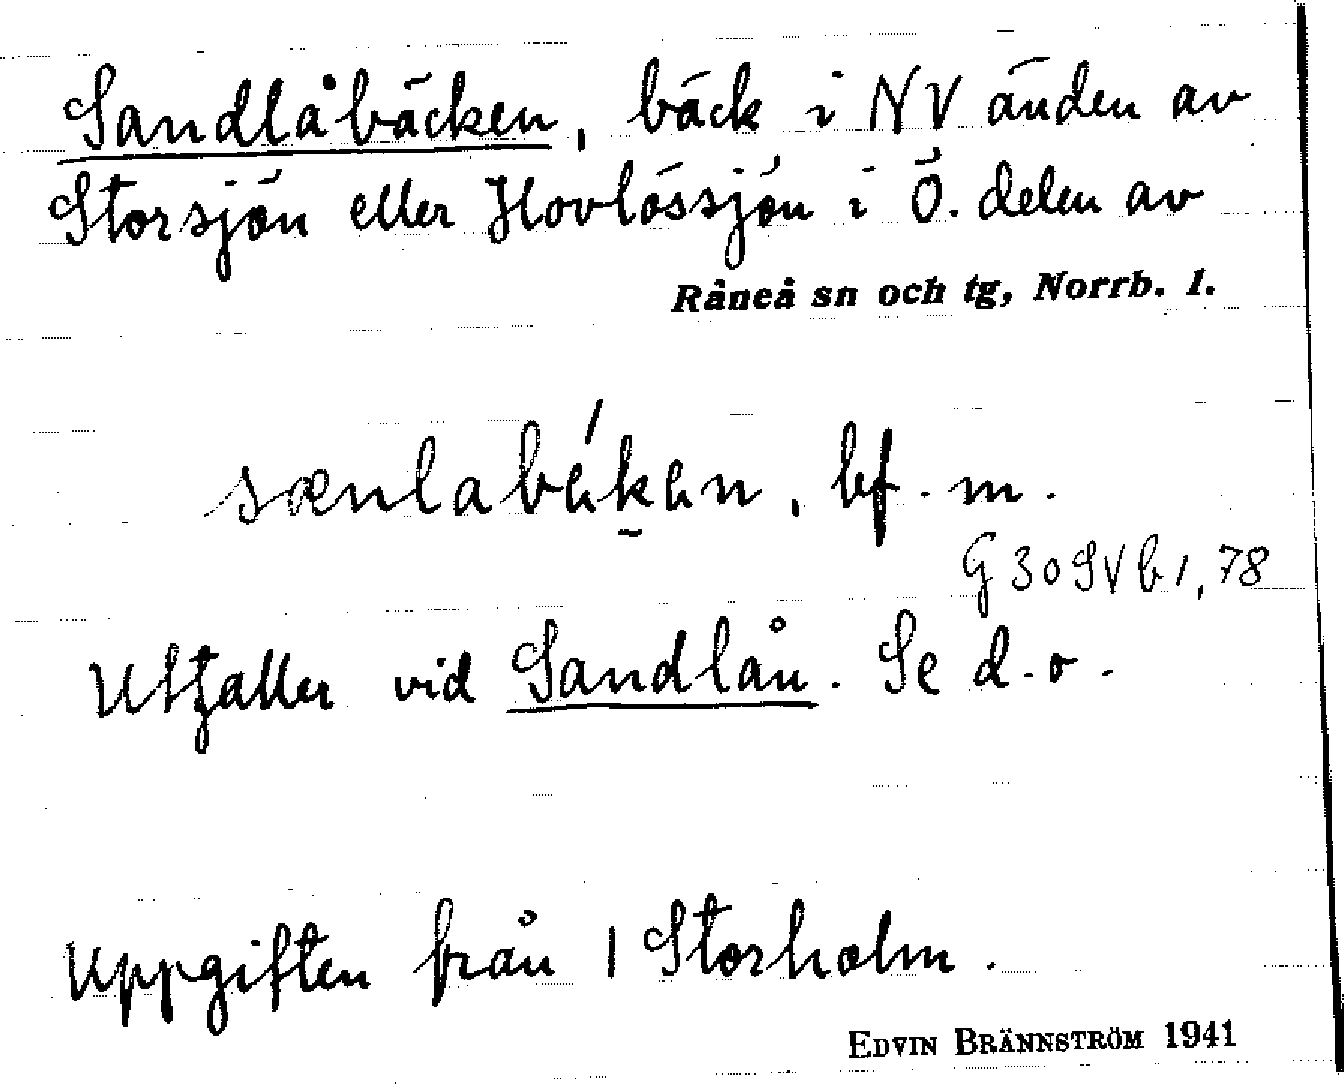 Sandlåbäcken, bäck i NV änden av
Storsjön eller Hovlössjön i Ö. delen av
Råneå sn och tg, Norrb. l.
bf. m.
G 30 SVb 1, 78
Utfaller vid Sandlån. Se d.o.
Uppgiften från 1 Storholm.
EDVIN BRÄNNSTRÖM 1941